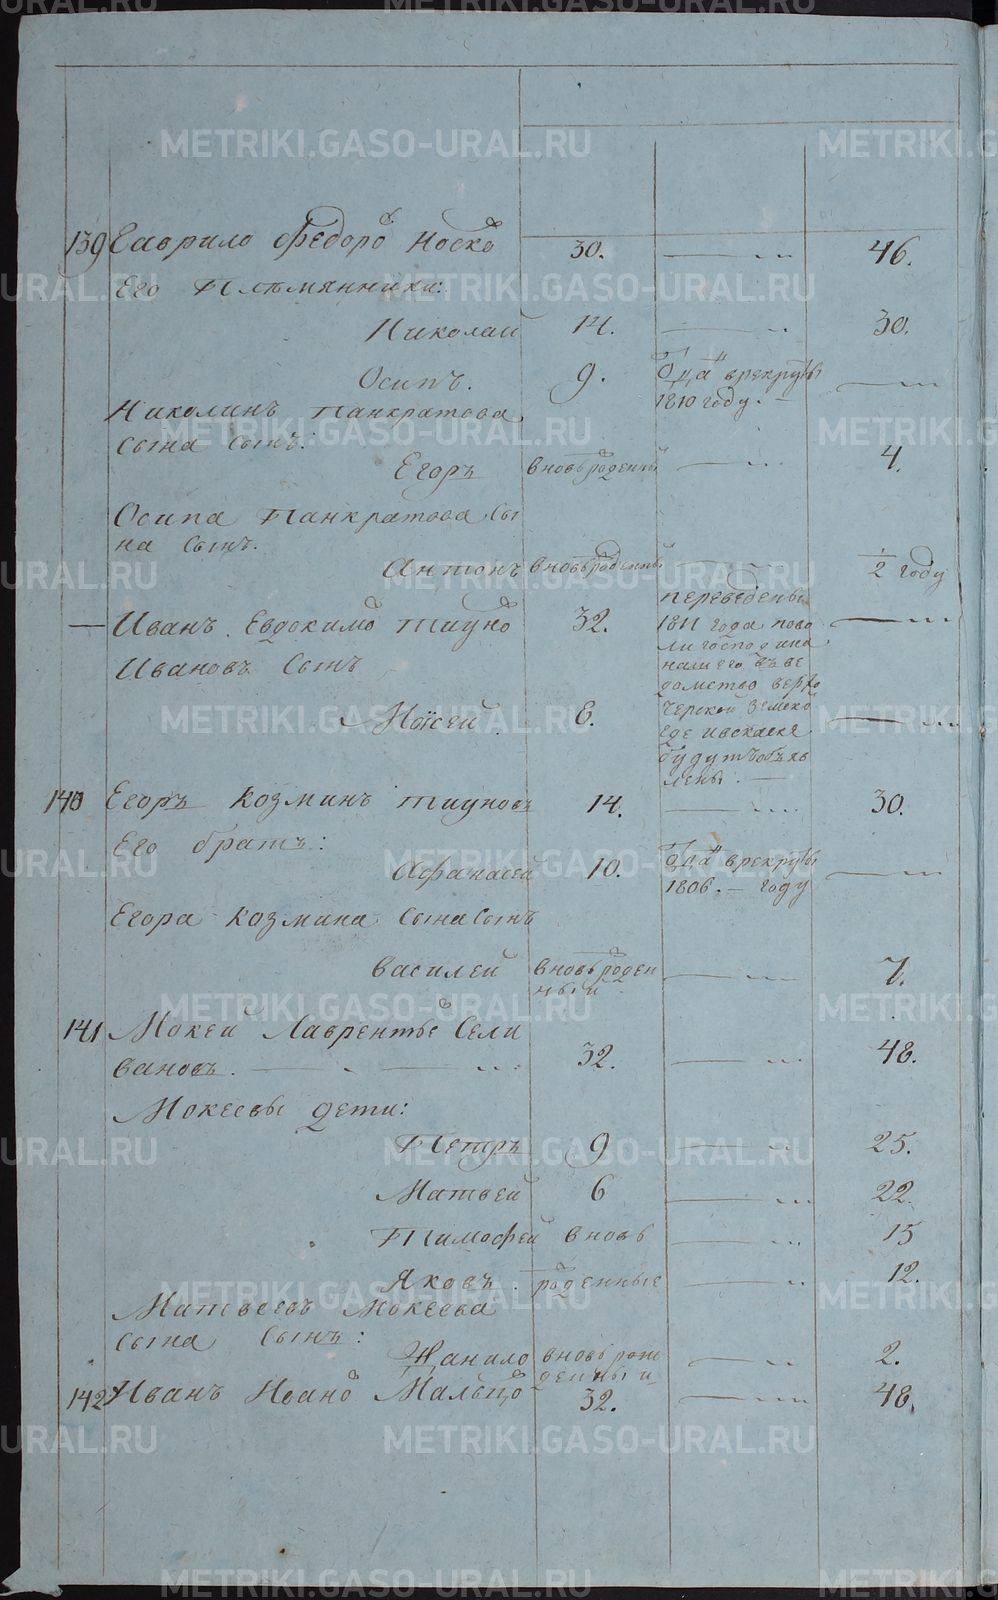 139 Гаврило Федоровъ Носковъ 30. 46.
Его Племянники:
Николай 14. 30.
Осипъ. 9. Отданъ в рекруты
1810 году.
Николинъ Панкратова
сына сынъ:
Егоръ вновьроденный 4.
Осипа Панкратова сы
на сынъ.
Антонъ вновьроденный 1/2 году
Иванъ Евдокимовъ Тиуновъ 32. переведены
1811 года пово
ли господина
Ивановъ сынъ нашего въ ве
домство верхо
Моїсей. 8. черской земской
где и в скаске
будутъ объяв
лены.
140 Егоръ Козминъ Тиуновъ 14. 30.
Его братъ:
Афанасей 10. Отданъ в рекруты
1806. году
Егора Козмина сына сынъ
Василей вновьроден
ный 7.
141 Мокей Лаврентьевъ Сели
вановъ. 32. 48.
Мокеевы дети:
Петръ 9 25.
Матвей 6 22.
Тимофей вновь 15
Яковъ роденные 12.
Матвеевъ Мокеева
сына сынъ:
Данило вновь рож
денный 2.
142 Иванъ Ивановъ Мальцовъ 32. 48.
METRIKI.GASO-URAL.RU